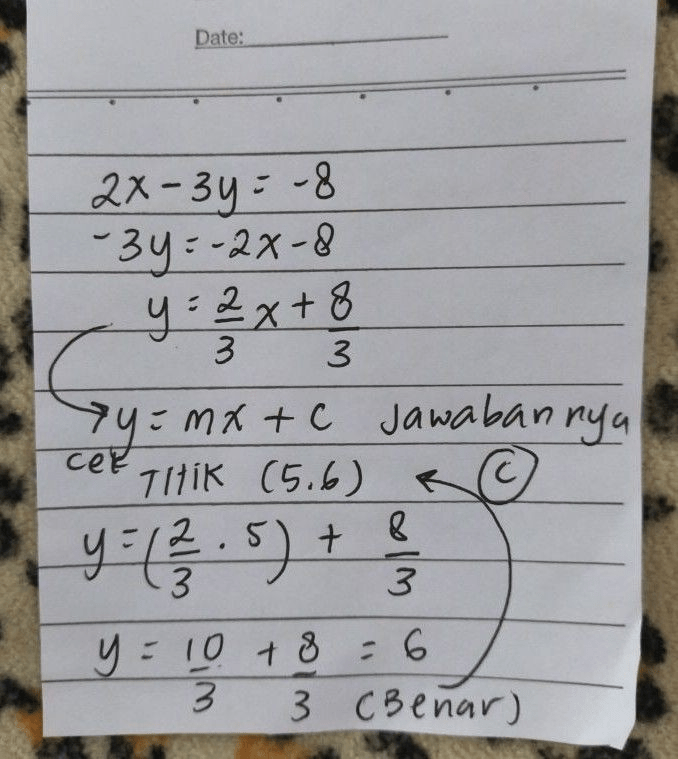 Date:
2x - 3y = -8
-3y = -2x - 8
y = 2/3 x + 8/3
y = mx + c Jawabannya
cek Titik (5.6) ← (C)
y = (2/3 . 5) + 8/3
y = 10/3 + 8/3 = 6
(Benar)